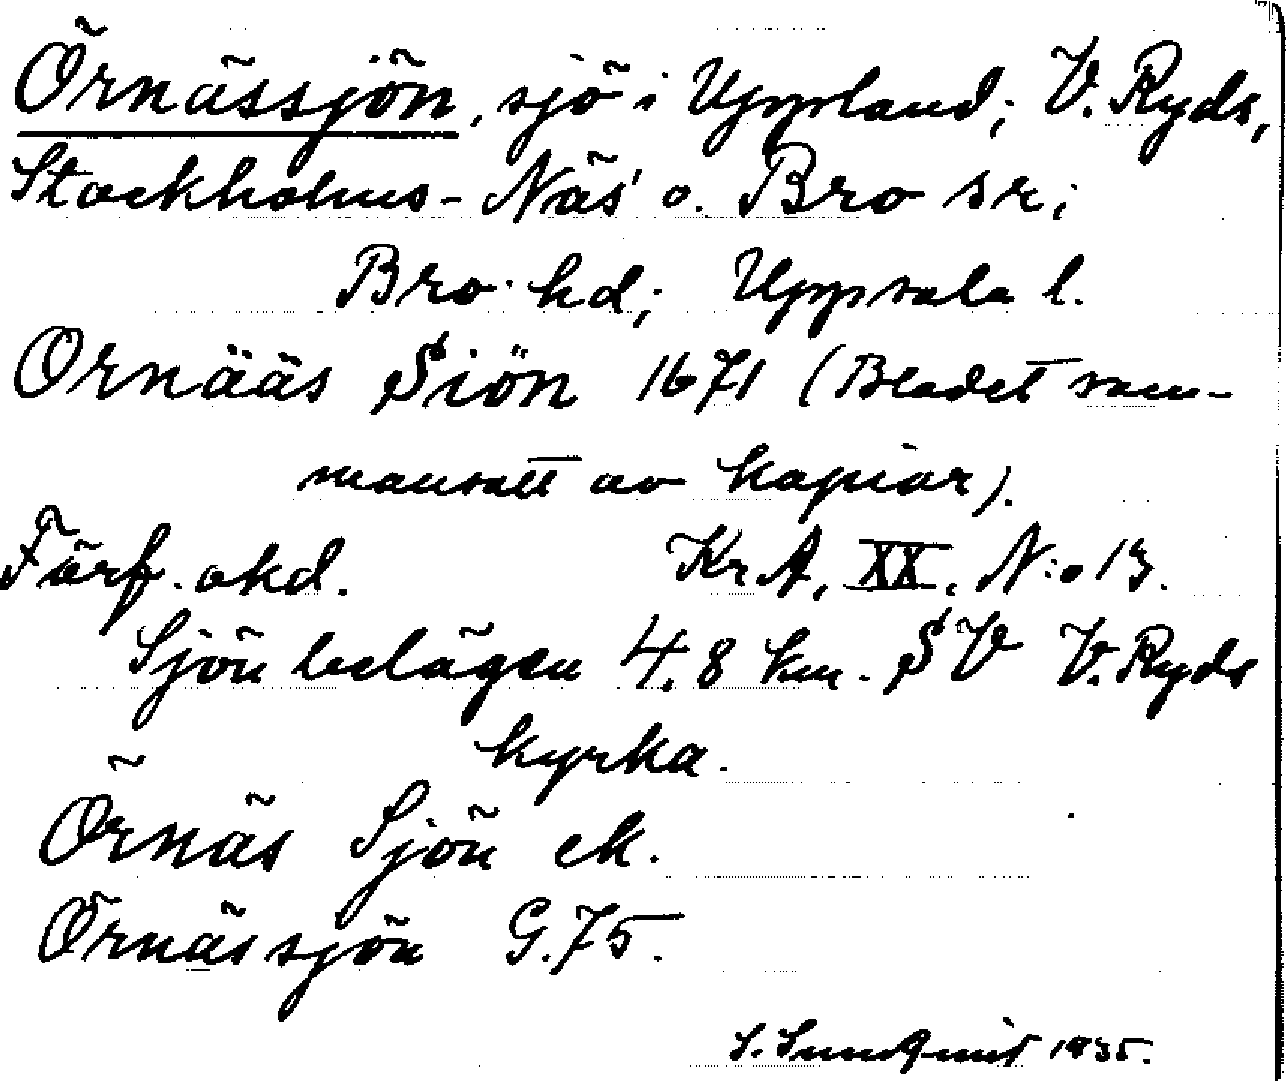 Örnässjön, sjö i Uppland; V. Ryds,
Stockholms-Näs o. Bro sr;
Bro hd; Uppsala l.
Ornääs Siön 1671 (Bladet sam-
mansatt av kopior).
Förf. okd. Kr.A. XX. N:o 13.
Sjön belägen 4.8 km. SV V. Ryds
kyrka.
Örnäs Sjön ek.
Örnässjön G.75.
S. Sundquist 1935.